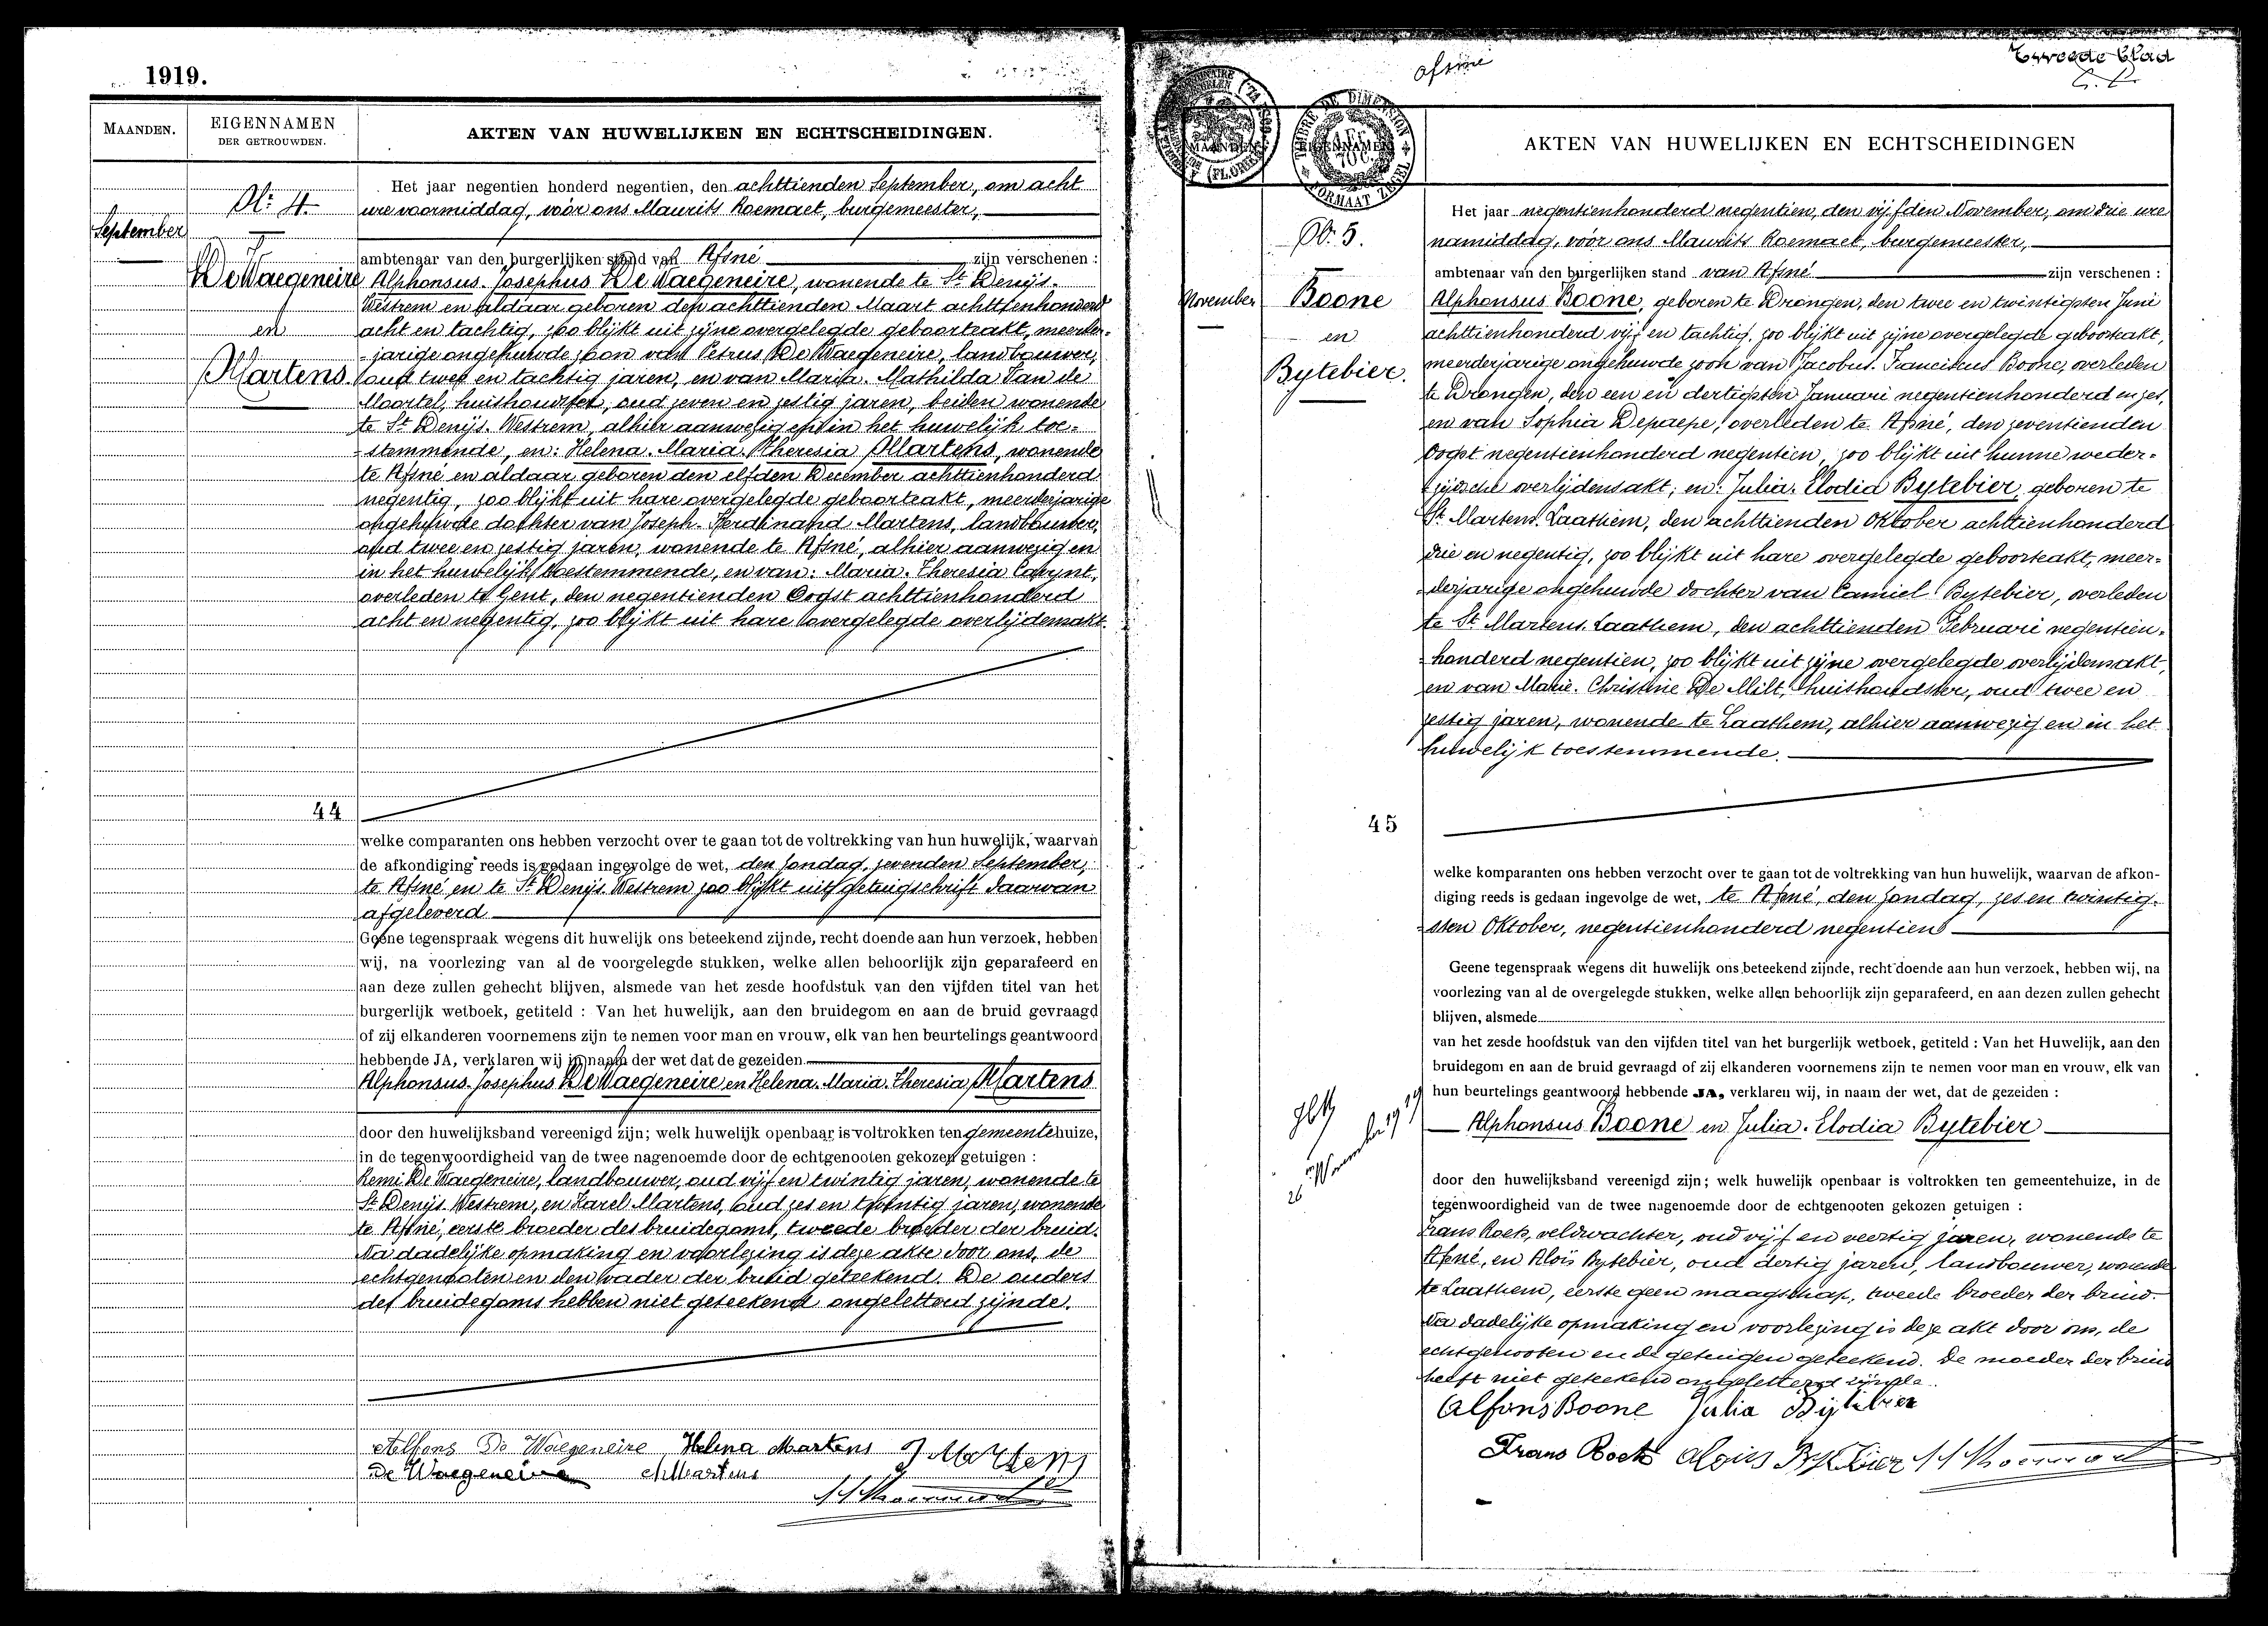 1919.
MAANDEN.
EIGENNAMEN
DER GETROUWDEN.
AKTEN VAN HUWELIJKEN EN ECHTSCHEIDINGEN.
September
Nr 4.
De Waegeneire
en
Martens.
Het jaar negentien honderd negentien, den achttienden September, om acht
ure voormiddag, vóór ons Maurits Roemaet, burgemeester,
ambtenaar van den burgerlijken stand van Afsné zijn verschenen :
Alphonsus-Josephus De Waegeneire, wonende te St Denijs-
Westrem en aldaar geboren den achttienden Maart achttienhonderd
acht en tachtig, zoo blijkt uit zijne overgelegde geboorteakt, meerder-
-jarige ongehuwde zoon van Petrus De Waegeneire, landbouwer,
oud twee en tachtig jaren, en van Maria-Mathilda Van de
Moortel, huishoudster, oud zeven en zestig jaren, beiden wonende
te St Denijs-Westrem, alhier aanwezig en in het huwelijk toe-
-stemmende, en: Helena-Maria-Theresia Martens, wonende
te Afsné en aldaar geboren den elfden December achttienhonderd
negentig, zoo blijkt uit hare overgelegde geboorteakt, meerderjarige
ongehuwde dochter van Joseph-Ferdinand Martens, landbouwer,
oud twee en zestig jaren, wonende te Afsné, alhier aanwezig en
in het huwelijk toestemmende, en van: Maria-Theresia
overleden te Gent, den negentienden Oogst achttienhonderd
acht en negentig, zoo blijkt uit hare overgelegde overlijdensakt.
44
welke comparanten ons hebben verzocht over te gaan tot de voltrekking van hun huwelijk, waarvan
de afkondiging reeds is gedaan ingevolge de wet, den zondag, zevenden September,
te Afsné en te St Denijs-Westrem zoo blijkt uit getuigschrift daarvan
afgeleverd
Geene tegenspraak wegens dit huwelijk ons beteekend zijnde, recht doende aan hun verzoek, hebben
wij, na voorlezing van al de voorgelegde stukken, welke allen behoorlijk zijn geparafeerd en
aan deze zullen gehecht blijven, alsmede van het zesde hoofdstuk van den vijfden titel van het
burgerlijk wetboek, getiteld : Van het huwelijk, aan den bruidegom en aan de bruid gevraagd
of zij elkanderen voornemens zijn te nemen voor man en vrouw, elk van hen beurtelings geantwoord
hebbende JA, verklaren wij in naam der wet dat de gezeiden
Alphonsus-Josephus De Waegeneire en Helena-Maria-Theresia Martens
door den huwelijksband vereenigd zijn; welk huwelijk openbaar is voltrokken ten gemeentehuize,
in de tegenwoordigheid van de twee nagenoemde door de echtgenooten gekozen getuigen :
Remi De Waegeneire, landbouwer, oud vijf en twintig jaren, wonende te
St Denijs-Westrem, en Karel Martens, oud zes en twintig jaren, wonende
te Afsné, eerste broeder des bruidegoms, tweede broeder der bruid.
Na dadelijke opmaking en voorlezing is deze akte door ons, de
echtgenooten en den vader der bruid geteekend. De ouders
des bruidegoms hebben niet geteekend ongeletterd zijnde.
Alfons De Waegeneire Helena Martens J Martens
De Waegeneire Martens
Afsné
Tweede blad
TIMBRE DE DIMENSION
FORMAAT ZEGEL
MAANDEN
EIGENNAMEN
AKTEN VAN HUWELIJKEN EN ECHTSCHEIDINGEN
November
No 5.
Boone
en
Bytebier.
Het jaar negentienhonderd negentien, den vijfden November, om drie ure
namiddag, vóór ons Maurits Roemaet, burgemeester,
ambtenaar van den burgerlijken stand van Afsné zijn verschenen :
Alphonsus Boone, geboren te Drongen, den twee en twintigsten Juni
achttienhonderd vijf en tachtig, zoo blijkt uit zijne overgelegde geboorteakt,
meerderjarige ongehuwde zoon van Jacobus-Franciskus Boone, overleden
te Drongen, den een en dertigsten Januari negentienhonderd en zes,
en van Sophia Depaepe, overleden te Afsné, den zeventienden
Oogst negentienhonderd negentien, zoo blijkt uit hunne weder-
-zijdsche overlijdensakt; en: Julia-Elodia Bytebier, geboren te
St Martens-Laathem, den achttienden Oktober achttienhonderd
drie en negentig, zoo blijkt uit hare overgelegde geboorteakt, meer-
-derjarige ongehuwde dochter van Camiel Bytebier, overleden
te St Martens-Laathem, den achttienden Februari negentien-
-honderd negentien, zoo blijkt uit zijne overgelegde overlijdensakt,
en van Marie-Christine De Milt, huishoudster, oud twee en
zestig jaren, wonende te Laathem, alhier aanwezig en in het
huwelijk toestemmende.
45
welke komparanten ons hebben verzocht over te gaan tot de voltrekking van hun huwelijk, waarvan de afkon-
diging reeds is gedaan ingevolge de wet, te Afsné, den zondag, zes en twintig-
-sten Oktober, negentienhonderd negentien
Geene tegenspraak wegens dit huwelijk ons beteekend zijnde, recht doende aan hun verzoek, hebben wij, na
voorlezing van al de overgelegde stukken, welke allen behoorlijk zijn geparafeerd, en aan dezen zullen gehecht
blijven, alsmede
van het zesde hoofdstuk van den vijfden titel van het burgerlijk wetboek, getiteld : Van het Huwelijk, aan den
bruidegom en aan de bruid gevraagd of zij elkanderen voornemens zijn te nemen voor man en vrouw, elk van
hun beurtelings geantwoord hebbende JA, verklaren wij, in naam der wet, dat de gezeiden :
Alphonsus Boone en Julia-Elodia Bytebier
26 November 1919
door den huwelijksband vereenigd zijn; welk huwelijk openbaar is voltrokken ten gemeentehuize, in de
tegenwoordigheid van de twee nagenoemde door de echtgenooten gekozen getuigen :
Frans Roets, veldwachter, oud vijf en veertig jaren, wonende te
Afsné, en Aloïs Bytebier, oud dertig jaren, landbouwer, wonende
te Laathem, eerste geen maagschap, tweede broeder der bruid.
Na dadelijke opmaking en voorlezing is deze akt door ons, de
echtgenooten en de getuigen geteekend. De moeder der bruid
heeft niet geteekend ongeletterd zijnde.
Alfons Boone Julia Bijtebier
Frans Roets Alois Bytebier